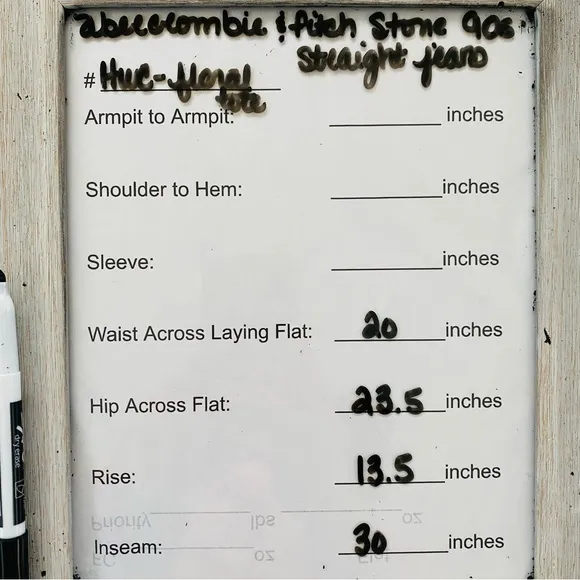 abercrombie & fitch Stone 90s
straight jeans
# Huc-floral
tote
Armpit to Armpit: ________ inches
Shoulder to Hem: ________ inches
Sleeve: ________ inches
Waist Across Laying Flat: 20 inches
Hip Across Flat: 23.5 inches
Rise: 13.5 inches
Priority ________ lbs ________ oz
Inseam: 30 inches
oz